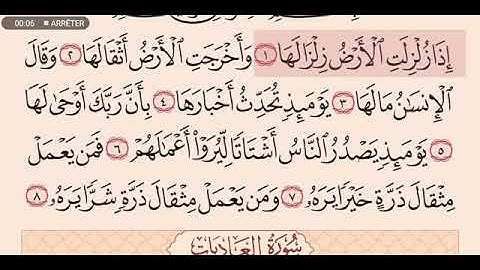 00:06 ■ ARRÊTER
إِذَا زُلْزِلَتِ ٱلْأَرْضُ زِلْزَالَهَا ١ وَأَخْرَجَتِ ٱلْأَرْضُ أَثْقَالَهَا ٢ وَقَالَ
ٱلْإِنسَٰنُ مَا لَهَا ٣ يَوْمَئِذٍ تُحَدِّثُ أَخْبَارَهَا ٤ بِأَنَّ رَبَّكَ أَوْحَىٰ لَهَا
٥ يَوْمَئِذٍ يَصْدُرُ ٱلنَّاسُ أَشْتَاتًا لِّيُرَوْا۟ أَعْمَٰلَهُمْ ٦ فَمَن يَعْمَلْ
مِثْقَالَ ذَرَّةٍ خَيْرًا يَرَهُۥ ٧ وَمَن يَعْمَلْ مِثْقَالَ ذَرَّةٍ شَرًّا يَرَهُۥ ٨
سُورَةُ العَادِيَاتِ